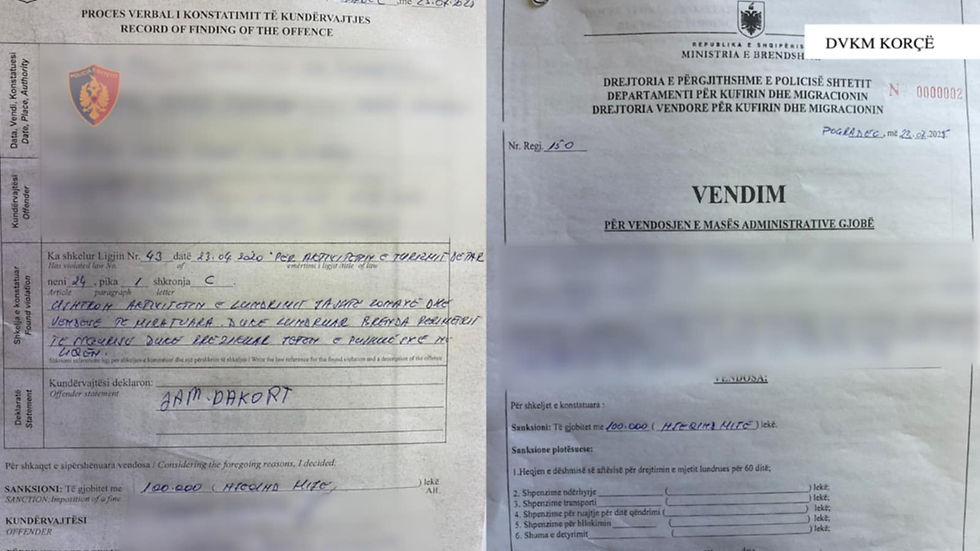 PROCES VERBAL I KONSTATIMIT TË KUNDËRVAJTJES
RECORD OF FINDING OF THE OFFENCE
Data, Vendi, Konstatuesi
Date, Place, Authority
POLICIA E SHTETIT
Kundërvajtësi
Offender
Shkelja e konstatuar
Found violation
Ka shkelur Ligjin Nr. 43 datë 23.04.2020 "PËR AKTIVITETIN E TURIZMIT DETAR
Has violated law No. of emërtimi i ligjit /title of law
neni 24, pika 1 shkronja C
Article paragraph letter
USHTRON AKTIVITETIN E LUNDRIMIT JASHTË ZONAVE DHE
VENDEVE TË MIRATUARA DUKE LUNDRUAR BRENDA PERIMETRIT
TË
LIQEN.
Deklaratë
Statement
Kundërvajtësi deklaron:
Offender statement
JAM DAKORT
Për shkaqet e sipërshënuara vendosa / Considering the foregoing reasons, I decided:
SANKSIONI: Të gjobitet me 100.000 ( ) lekë
SANCTION: Imposition of a fine All.
KUNDËRVAJTËSI
OFFENDER
REPUBLIKA E SHQIPËRIS
MINISTRIA E BRENDSH
DVKM KORÇË
DREJTORIA E PËRGJITHSHME E POLICISË SHTETIT
DEPARTAMENTI PËR KUFIRIN DHE MIGRACIONIN
DREJTORIA VENDORE PËR KUFIRIN DHE MIGRACIONIN
N 0000002
POGRADEC, më 23.07.2025
Nr. Regj. 150
VENDIM
PËR VENDOSJEN E MASËS ADMINISTRATIVE GJOBË
VENDOSA:
Për shkeljet e konstatuara :
Sanksioni: Të gjobitet me 100.000 ( ) lekë.
Sanksione plotësuese:
1.Heqjen e dëshmisë së aftësisë për drejtimin e mjetit lundrues për 60 ditë;
2. Shpenzime ndërhyrje ( ) lekë;
3. Shpenzime transporti ( ) lekë;
4. Shpenzime për ruajtje për ditë qëndrimi ( ) lekë;
5. Shpenzime për bllokimin ( ) lekë;
6. Shuma e detyrimit ( ) lekë;